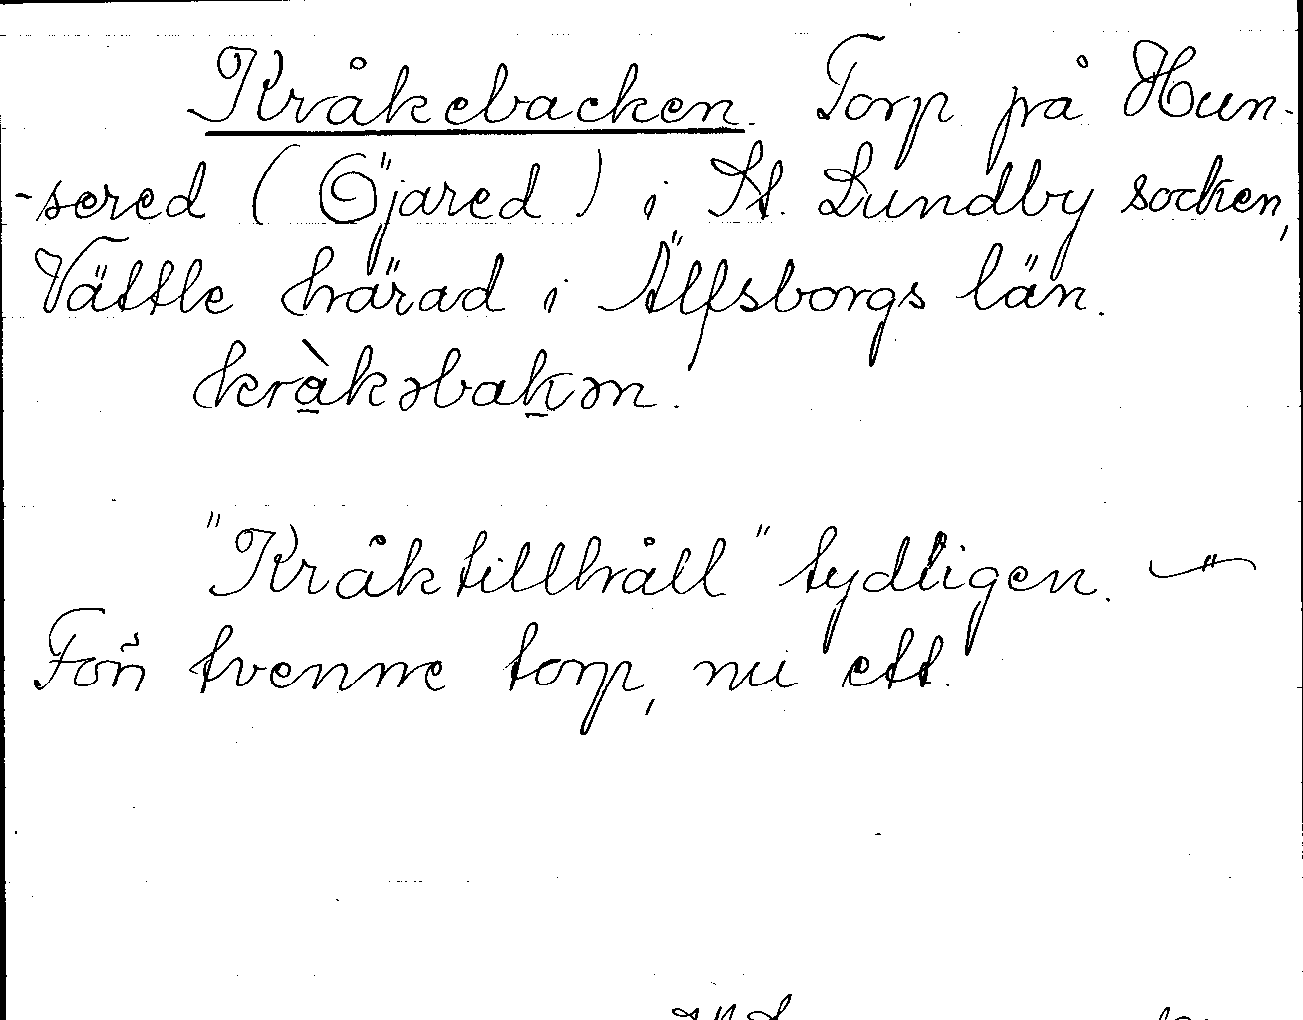 Kråkebacken. Torp på Hun-
-sered (Öjared) i St. Lundby socken,
Vättle härad i Älfsborgs län.
kràkəbakən.
"Kråktillhåll" tydligen. —"—
Förr tvenne torp, nu ett.